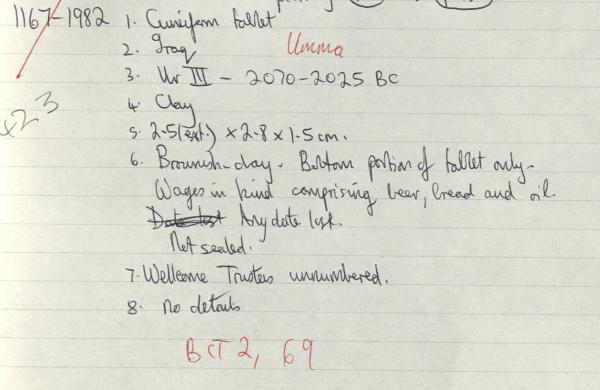 1167-1982 1. Cuneiform tablet
2. Iraq Umma
3. Ur III - 2070-2025 BC
4. Clay
x23
5. 2.5(ext.) x 2.8 x 1.5 cm.
6. Brownish clay. Bottom portion of tablet only.
Wages in kind comprising beer, bread and oil.
Date lost Any date lost.
Not sealed.
7. Wellcome Trustees unnumbered.
8. no details
BCT 2, 69